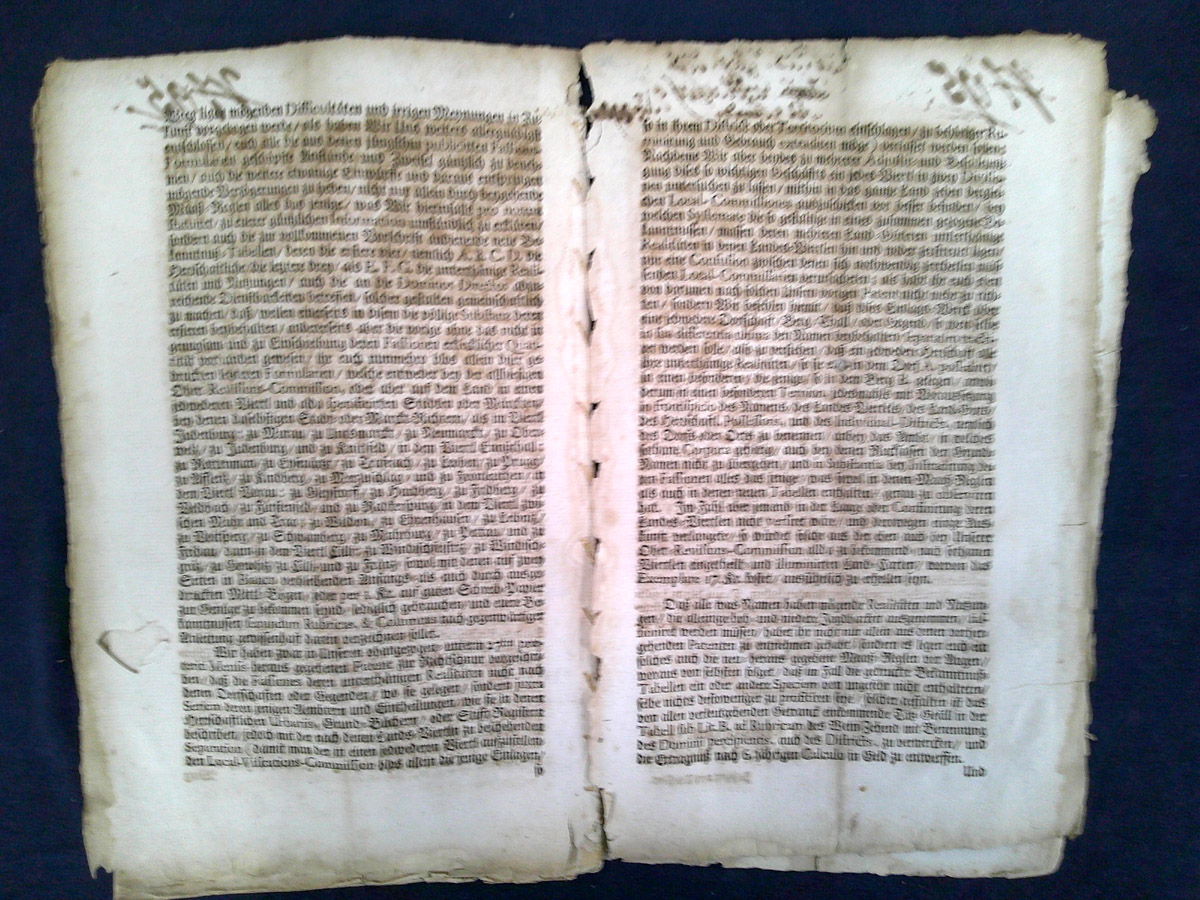 Weeg ligen mögenden Difficultäten und irrigen Meynungen in Zu-
kunft vorgebogen werde / als haben Wir Uns weiters allergnädigst
entschlossen / euch alle die aus denen jüngsthin publicirten Fassions-
Formularien geschöpfte Anstände und Zweifel gänzlich zu beneh-
men / auch die weitere etwanige Einwürffe und daraus entspringen
mögende Verzögerungen zu heben / nicht nur allein durch beygehende
Maaß-Reglen alles das jenige / was Wir hierinfalls pro
zu euerer gänzlichen Information umständlich zu erklären /
sondern auch die zur vollkommenen Vorschrifft dienende neue Be-
kanntnus-Tabellen / deren die erstere vier / nemlich A. B. C. D. die
Herrschaftliche / die letztere drey / als E. F. G. die unterthänige Reali-
täten und Nutzungen / auch die an die Dominia Directa abzu-
reichende Dienstbarkeiten betreffen / solcher gestalten gemeinschaftlich
zu machen / daß / weilen einerseits in disen die völlige Substanz deren
ersteren beybehalten / andererseits aber die vorige ohne das nicht zu
genugsam und zu Einschreibung deren Fassionen erforderlicher Quan-
tität vorhanden gewesen / ihr euch nunmehro blos allein diser ge-
druckten letzteren Formularien / welche entweder bey der allhiesigen
Ober-Revisions-Commission, oder aber auf dem Land in einen
jedwederen Viertl und alda specificirten Städten oder Märckten /
bey denen daselbstigen Stadt- oder Marckt-Richtern / als im Viertl
Judenburg: zu Murau / zu Unzmarckt / zu Neumarckt / zu Ober-
welz / zu Judenburg / und zu Knittlfeld / in dem Viertl Ennsthall:
zu Rottenman / zu Eysenärzt / zu Trofeiach / zu Leoben / zu Prugg /
zu Afflenz / zu Kindberg / zu Mürzzuschlag / und zu Fronleuthen / in
dem Viertl Vorau: zu Gleystorff / zu Hardberg / zu Feldberg / zu
Veldbach / zu Fürstenfeld / und zu Radkerspurg / in dem Viertl zwi-
schen Muhr und Traa: zu Wildon / zu Ehrenhausen / zu Leibniz /
zu Voitsperg / zu Schwanberg / zu Mahrburg / zu Pettau / und zu
Fridau / dann in dem Viertl Cilli: zu Windischfeistritz / zu Windisch-
gräz / zu Gonowitz / zu Cilli / und zu Franz / sowol mit denen auf zwey
Seiten in Bianco verbleibenden Anfangs- als auch durch ausge-
druckten Mittl-Bögen / jeder per 1. Kr. auf guten Schreib-Papier
zur Genüge zu bekommen seynd / lediglich gebrauchen / und euere Be-
kanntnussen secundum Rubricas, & Columnas nach gegenwärtiger
Anleitung gewissenhaft darein verzeichnen sollet.
Wir haben zwar in Unseren obangezogen unterm
deren Fassiones deren unterthänigen Realitäten nicht nach
denen Ortschafften oder Gegenden / wo sie gelegen / sondern juxta
Seriem deren jenigen Aembtern und Eintheilungen / wie sie in denen
Herrschaftlichen Urbariis, Grund-Büchern / oder Stifft-Registern
beschriben / jedoch mit der nach denen Lands-Viertln zu beschehenden
Separation / damit man der in einen jedwederen Viertl aufzustellen-
den Local-Visitations-Commission blos allein die jenige Einlagen /
so
so in ihren District oder Territorium einschlagen / zu behöriger Re-
und Gebrauch extradiren möge / verfasset werden sollen.
Nachdeme Wir aber beydes zu mehrerer Adjustir- und Beschleuni-
gung dises so wichtigen Geschäffts ein jedes Viertl in zwey Districte
unterteilen zu lassen / mithin in das ganze Land zehen derglei-
chen Local-Commissiones auszuschicken vor besser befunden / bey
welchen Systemate die so gestaltige in eines zusammen gezogene Be-
kanntnussen / massen deren mehreren Land-Güteren unterthänige
Realitäten in denen Landes-Viertlen hin und wieder zerstreuet ligen /
nur eine Confusion zwischen denen sich nothwendig zertheilen müs-
senden Local-Commissarien verursacheten: als habt ihr euch hier-
von darumen nach solchen Unsern vorigen Patent nicht mehr zu rich-
ten / sondern Wir befehlen hiemit / daß dises Einlags-Werck über
eine jedwedere Dorfschaft / Berg / Thall / oder Gegend / so wenn selbe
den Namen beybehalten / separatim verfas-
set werden solle / also zu verstehen / daß ein jedwedere Herrschaft alle
ihre unterthänige Realitäten / so sie etwo in dem Dorf A. possediret /
in einen besonderen / die jenige / so in dem Berg B. gelegen / ander-
werum in einen besonderen Tomum, jederzeit mit Voraussetzung
in frontispicio des Namens / des Landes-Viertels / des Land-Guts /
der Herrschaft, Possessoris, und des individual-Districts, nemlich
des Dorfs oder Orts zu benennen / anbey das Ambt / in welches
sothane Corpora gehörig / auch bey denen Rucksassen der Grund-
Namen nicht zu übergehen / und in Substantia bey Instruirung de-
ren Fassionen alles das jenige / was sowol in denen Maaß-Reglen
als auch in denen neuen Tabellen enthalten / genau zu observiren
hat. Im Fahl aber jemand in der Lange oder Continirung deren
Landes-Viertlen nicht versiret wäre / und derowegen einige Aus-
kunft verlangete / so würdet solche aus der eben auch bey Unserer
Ober-Revisions-Commission allda zu bekommend- nach sothanen
Viertlen eingetheilt- und illuminirten Land-Carten / wovon das
Exemplare 17. Kr. kostet / ausführlich zu ersehen seyn.
Daß alle was Namen haben mögende Realitäten und Nutzun-
gen / die alleinige hoh- und niedere Jagdbarkeit ausgenommen / fas-
sioniret werden müssen / habet ihr nicht nur allein aus denen vorher-
gehenden Patenten zu entnehmen gehabt / sondern es ligen euch ein
solches auch die neu-heraus gegebene Maaß-Reglen vor Augen /
woraus von selbsten folget / daß im Fall die gedruckte Bekanntnuß-
Tabellen ein oder andere Speciem von ungefehr nicht enthalteten /
selbe nichts destoweniger zu inseriren seye / solcher gestalten ist das
von allen verleutgebenden Getranck einkommende Täz-Gefäll in der
Tabell sub Lit. B. ad Rubricam des Wein-Zehend mit Benennung
des Dominii percipientis, auch des Districts, zu vermercken / und
die Erträgnuß nach 6. jährigen Calculo in Geld zu entwerffen.
Und